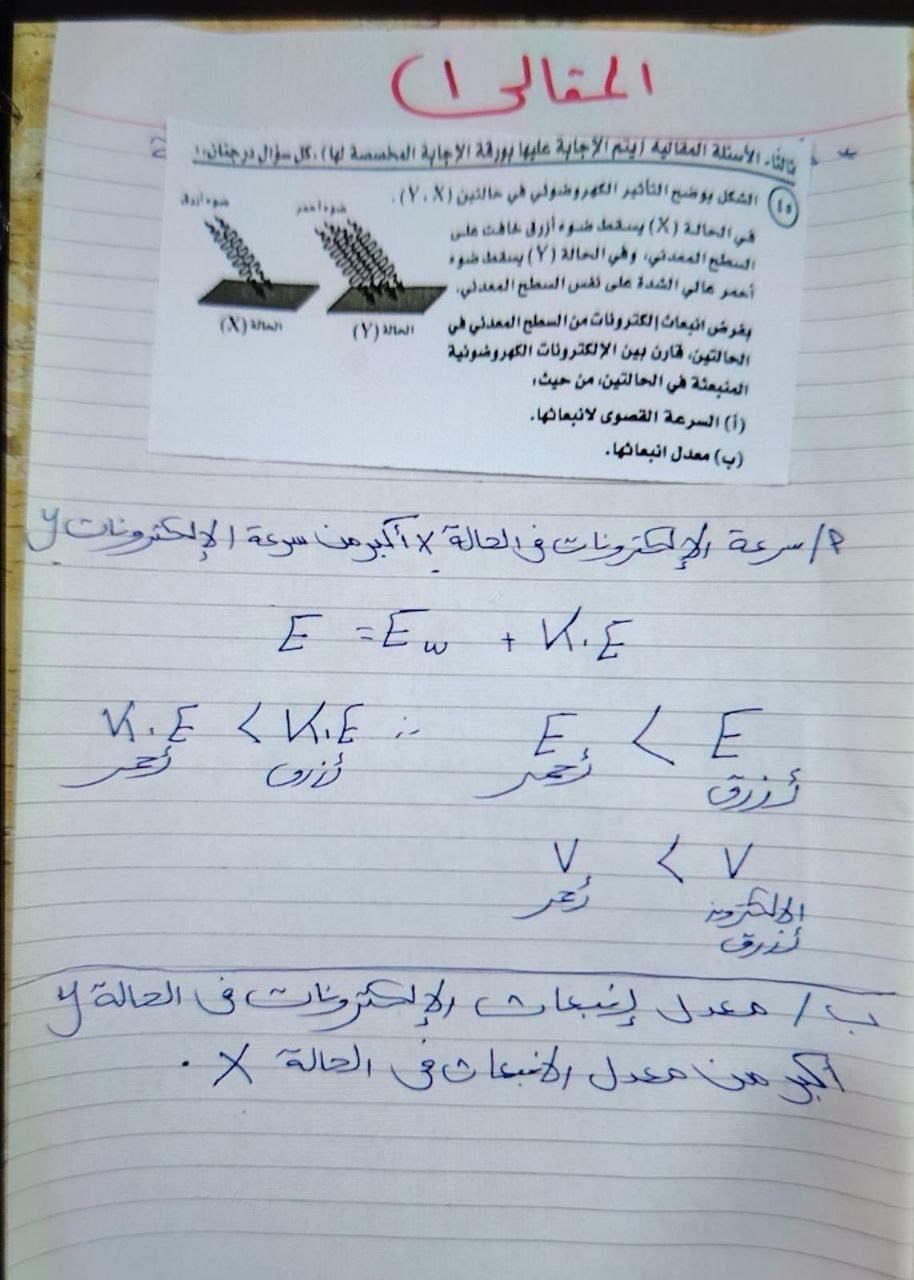 المقالى ١)
ثالثاً، الأسئلة المقالية (يتم الإجابة عليها بورقة الإجابة المخصصة لها)، (كل سؤال درجتان)،
٤٥ الشكل يوضح التأثير الكهروضوئي في حالتين (Y ، X).
في الحالة (X) يسقط ضوء أزرق خافت على
السطح المعدني، وفي الحالة (Y) يسقط ضوء
أحمر عالي الشدة على نفس السطح المعدني.
بفرض انبعاث إلكترونات من السطح المعدني في
الحالتين، قارن بين الإلكترونات الكهروضوئية
المنبعثة في الحالتين، من حيث،
(أ) السرعة القصوى لانبعاثها.
(ب) معدل انبعاثها.
ضوء أحمر
ضوء أزرق
الحالة (Y)
الحالة (X)
أ/ سرعة الإلكترونات فى الحالة X أكبر من سرعة الإلكترونات Y
E = Ew + K.E
K.E < K.E ∴ E < E
أحمر أزرق أحمر أزرق
V < V
أحمر الالكترون
أزرق
ب/ معدل إنبعاث الإلكترونات فى الحالة Y
أكبر من معدل الانبعاث فى الحالة X .